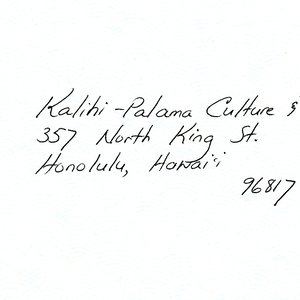 Kalihi-Palama Culture &
357 North King St.
Honolulu, Hawai'i
96817